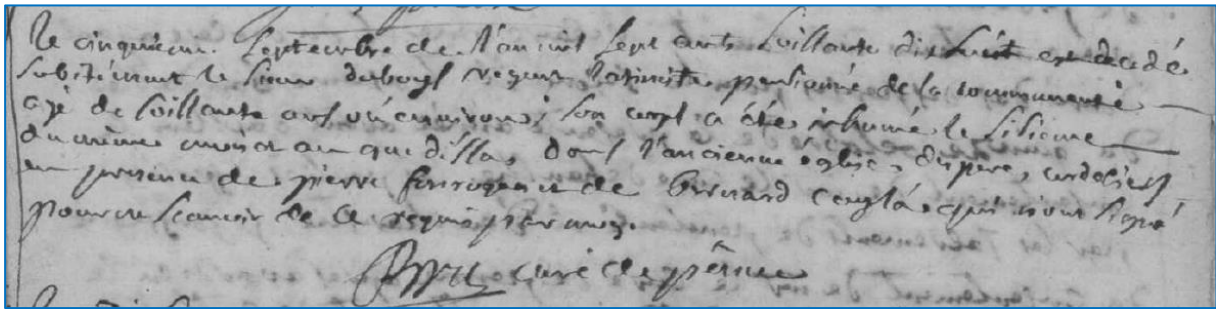 le cinquieme Septembre de l'an mil sept cents soissante dixhuit est decedé
subitement le sieur duboys regent latiniste pensioné de la communauté
agé de soissante ans ou environs; son corps a été inhumé le sisieme
du même mois et an que dessus dans l'ancienne église des peres cordeliers
en presence de pierre et de bernard qui n'ont signé
pour ne scauoir de ce requis par moy.
curé de